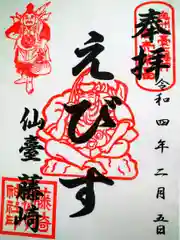 奉拝
令和四年二月五日
えびす
仙臺
藤崎